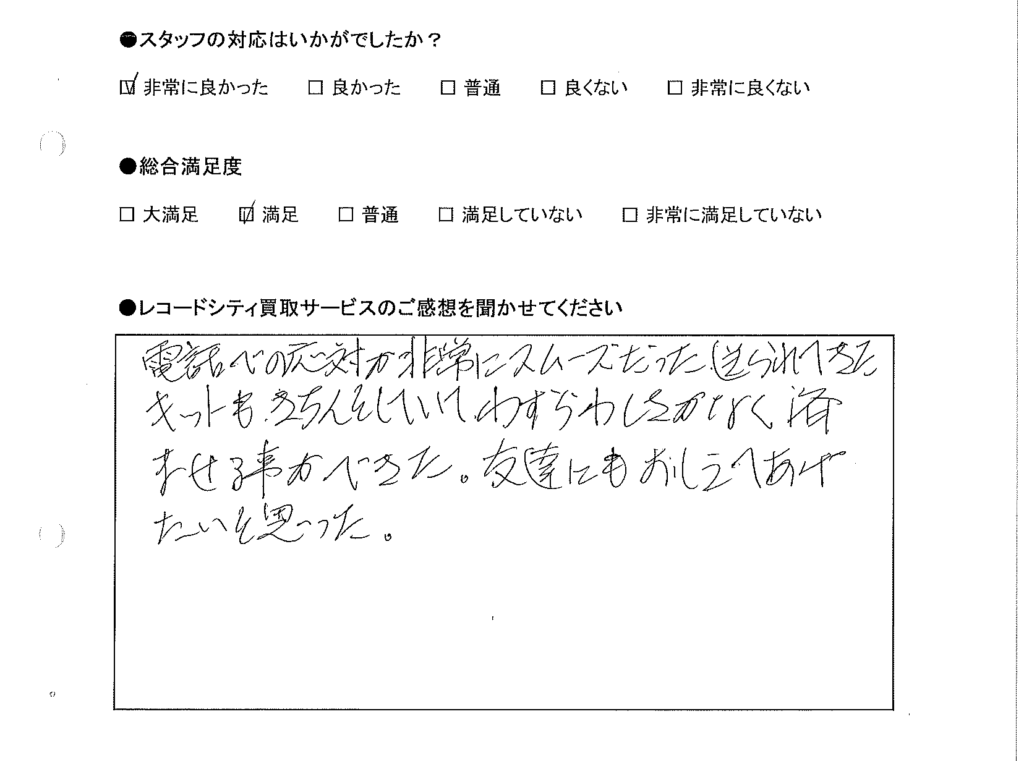 ●スタッフの対応はいかがでしたか？
☑ 非常に良かった ☐ 良かった ☐ 普通 ☐ 良くない ☐ 非常に良くない
●総合満足度
☐ 大満足 ☑ 満足 ☐ 普通 ☐ 満足していない ☐ 非常に満足していない
●レコードシティ買取サービスのご感想を聞かせてください
電話での応対が非常にスムーズだった。送られてきた
キットも、きちんとしていて、わずらわしさがなく、済
ませる事ができた。友達にもおしえてあげ
たいと思った。